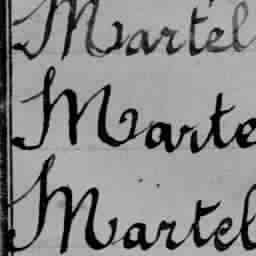 Martel
Marte
Martel